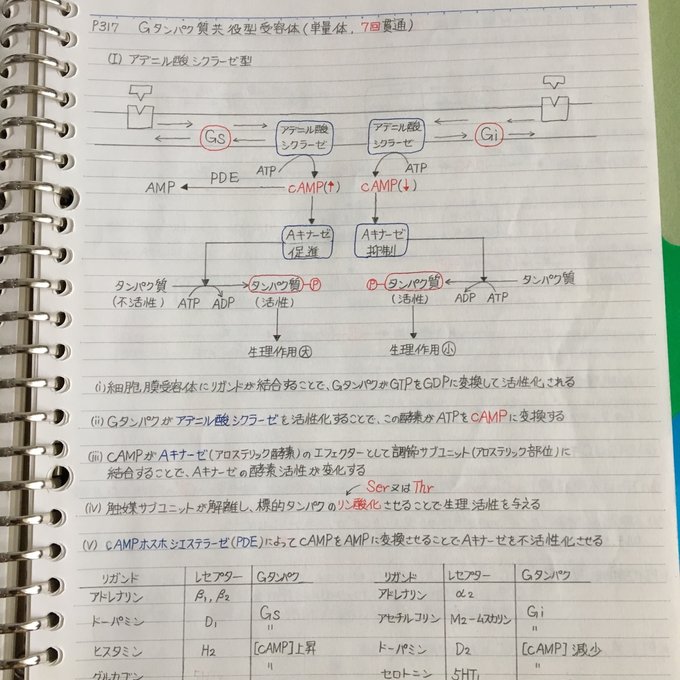 P317 Gタンパク質共役型受容体(単量体, 7回貫通)
(I) アデニル酸シクラーゼ型
Gs
アデニル酸
シクラーゼ
アデニル酸
シクラーゼ
Gi
ATP
ATP
AMP
PDE
cAMP(↑)
cAMP(↓)
Aキナーゼ
促進
Aキナーゼ
抑制
タンパク質
(不活性)
ATP
ADP
タンパク質
(活性)
P
P
タンパク質
(活性)
ADP
ATP
タンパク質
生理作用大
生理作用小
(i) 細胞膜受容体にリガンドが結合することで、GタンパクがGTPをGDPに変換して活性化される
(ii) Gタンパクがアデニル酸シクラーゼを活性化することで、この酵素がATPをcAMPに変換する
(iii) cAMPがAキナーゼ(アロステリック酵素)のエフェクターとして調節サブユニット(アロステリック部位)に
結合することで、Aキナーゼの酵素活性が変化する
Ser又はThr
(iv) 触媒サブユニットが解離し、標的タンパクのリン酸化させることで生理活性を与える
(v) cAMPホスホジエステラーゼ(PDE)によってcAMPをAMPに変換させることでAキナーゼを不活性化させる
リガンド レセプター Gタンパク リガンド レセプター Gタンパク
アドレナリン β1, β2 アドレナリン α2
ドーパミン D1 Gs アセチルコリン M2-ムスカリン Gi
〃 〃
ヒスタミン H2 [cAMP]上昇 ドーパミン D2 [cAMP]減少
グルカゴン 〃 セロトニン 5HT1 〃